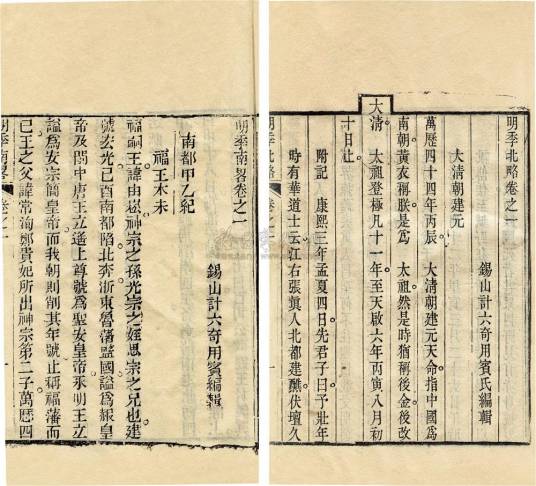 明季北略卷之一
錫山計六奇用賓氏編輯
大清朝建元
萬曆四十四年丙辰 大清朝建元天命指中國爲
南朝黃衣稱朕是爲 太祖然是時猶稱後金後改
大清 太祖登極凡十一年至天啟六年丙寅八月初
十日止
附記 康熙三年孟夏四日先君子曰予壯年
時有華道士云江右張眞人北都建醮伏壇久
明季北略 卷之一 一
明季南畧卷之一
錫山計六奇用賓編輯
南都甲乙紀
福王本末
福嗣王諱由崧神宗之孫光宗之姪思宗之兄也建
號宏光己酉南都陷北奔浙東魯藩監國謚爲赧皇
帝及閩中唐王立遙上尊號爲聖安皇帝永明王立
謚爲安宗簡皇帝而我朝則削其年號止稱福藩而
已王之父諱常洵鄭貴妃所出神宗第二子萬曆四
明季南畧 卷之一